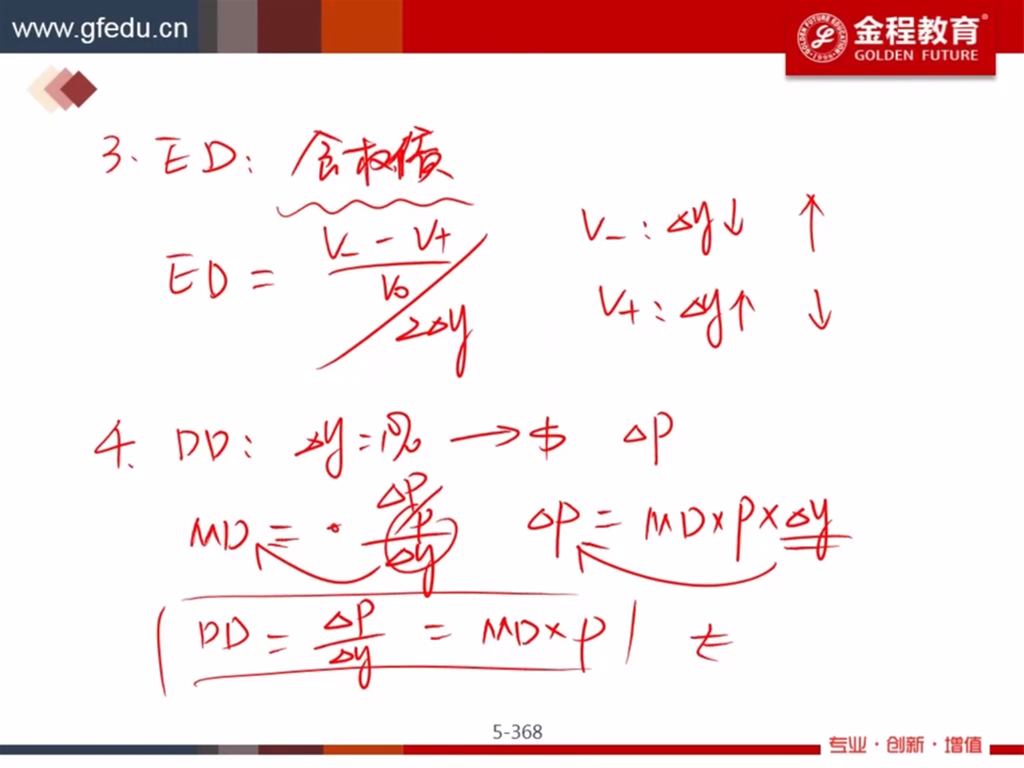 www.gfedu.cn
金程教育®
GOLDEN FUTURE
3. ED: 含权债
ED = (V₋ - V₊)/V₀ / 2Δy
V₋: Δy↓ ↑
V₊: Δy↑ ↓
4. DD: Δy = 1% → $ ΔP
MD = - (ΔP/P)/Δy ΔP = MD×P×Δy
|DD = ΔP/Δy = MD×P|
5-368
专业·创新·增值